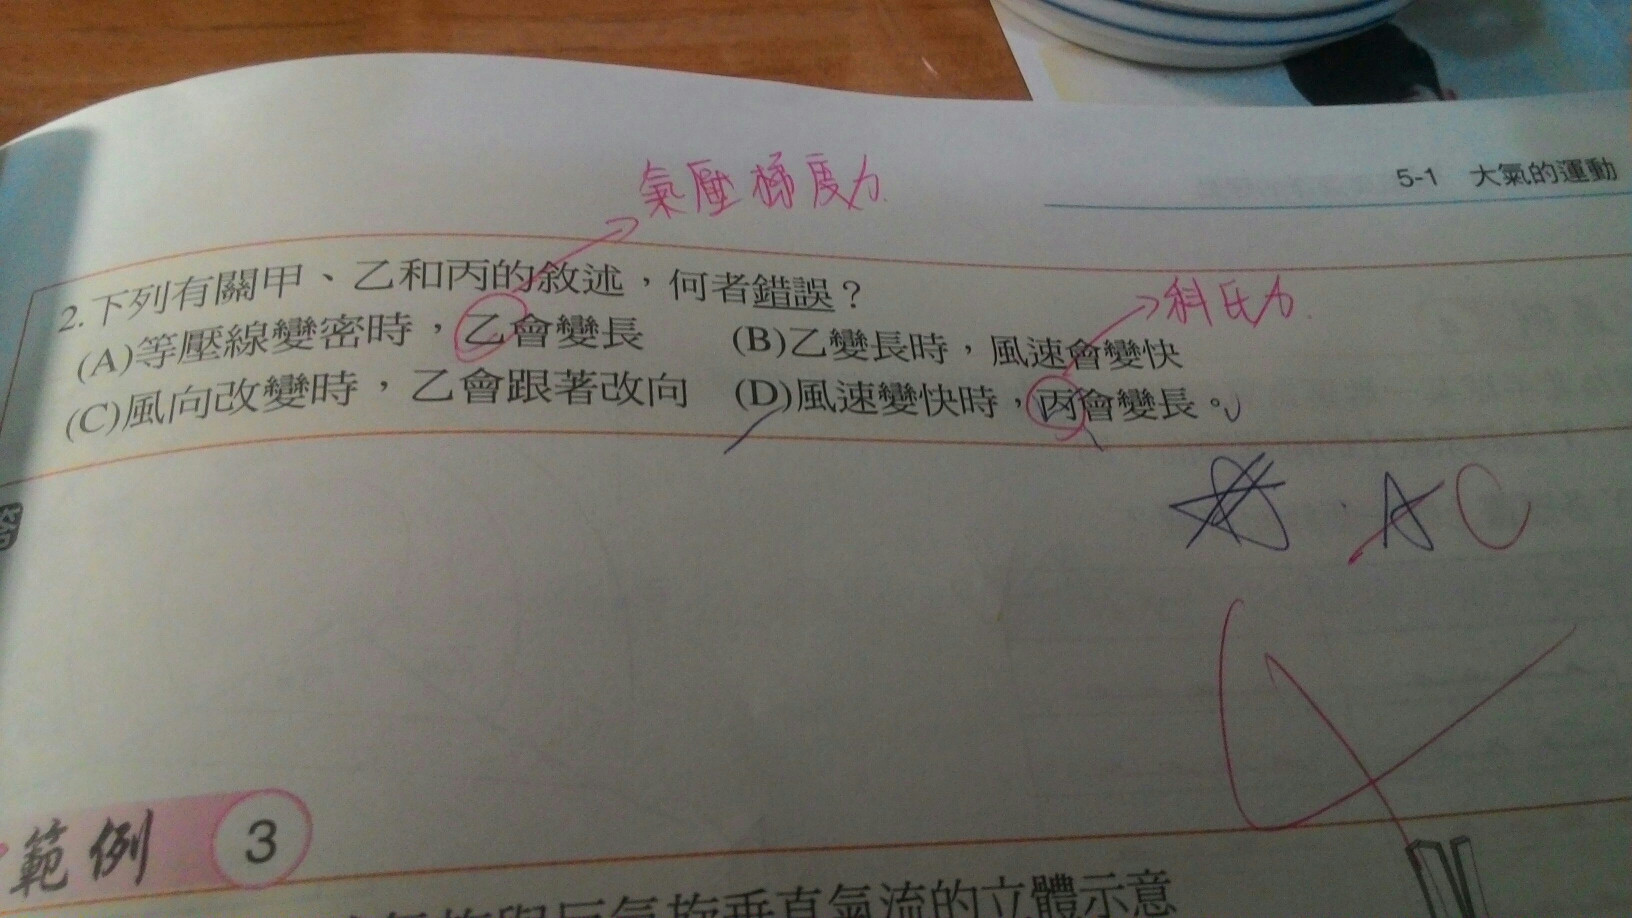 5-1 大氣的運動
氣壓梯度力
2.下列有關甲、乙和丙的敘述，何者錯誤？
科氏力
(A)等壓線變密時，乙會變長 (B)乙變長時，風速會變快
(C)風向改變時，乙會跟著改向 (D)風速變快時，丙會變長。
A C
範例 3
氣流的立體示意